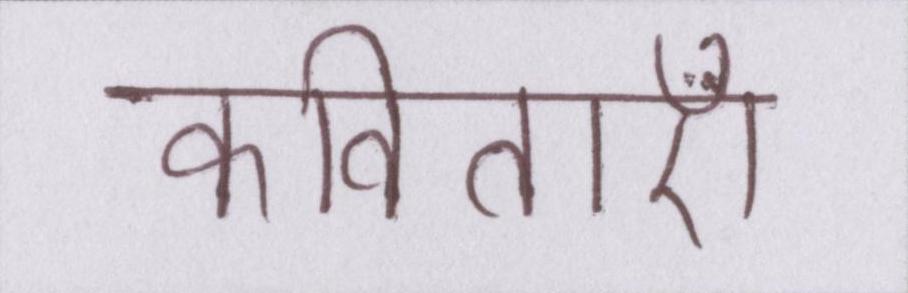 कविताएँ